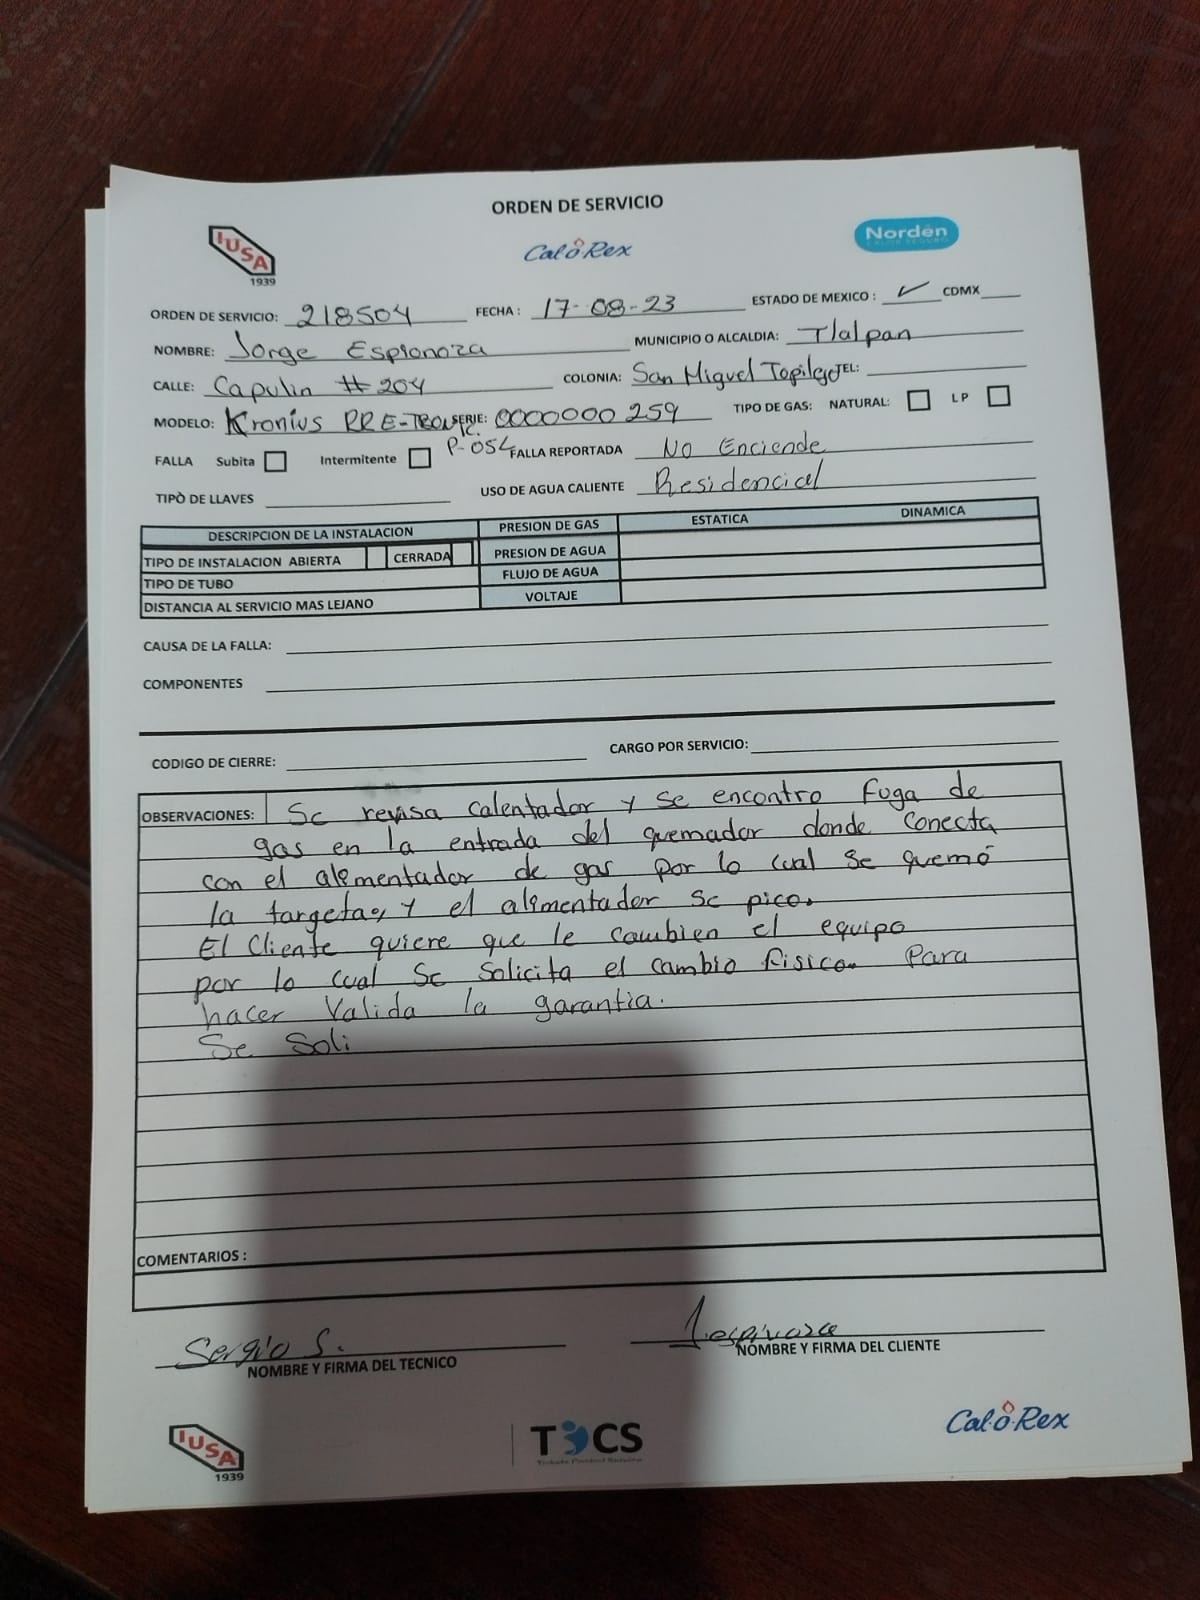 ORDEN DE SERVICIO
IUSA 1939
Cal-o-Rex
Nordën
ORDEN DE SERVICIO: 218504 FECHA: 17-08-23 ESTADO DE MEXICO: ✓ CDMX
NOMBRE: Jorge Espionoza MUNICIPIO O ALCALDIA: Tlalpan
CALLE: Capulin #204 COLONIA: San Miguel Topilejo TEL:
MODELO: Kronius SERIE: 0000000259 TIPO DE GAS: NATURAL: LP
P-05L
FALLA Subita Intermitente FALLA REPORTADA No Enciende
TIPÒ DE LLAVES USO DE AGUA CALIENTE Residencial
DESCRIPCION DE LA INSTALACION PRESION DE GAS ESTATICA DINAMICA
TIPO DE INSTALACION ABIERTA CERRADA PRESION DE AGUA
TIPO DE TUBO FLUJO DE AGUA
DISTANCIA AL SERVICIO MAS LEJANO VOLTAJE
CAUSA DE LA FALLA:
COMPONENTES
CODIGO DE CIERRE: CARGO POR SERVICIO:
OBSERVACIONES: Se revisa calentador y se encontro fuga de
gas en la entrada del quemador donde conecta
con el alimentador de gas por lo cual se quemó
la targeta, y el alimentador se pico.
El Cliente quiere que le cambien el equipo
por lo cual se solicita el cambio fisico. Para
hacer Valida la garantia.
Se Soli
COMENTARIOS :
Sergio S. J. espinoza
NOMBRE Y FIRMA DEL TECNICO NOMBRE Y FIRMA DEL CLIENTE
IUSA 1939
TiCS
Tickets Control Service
Cal-o-Rex